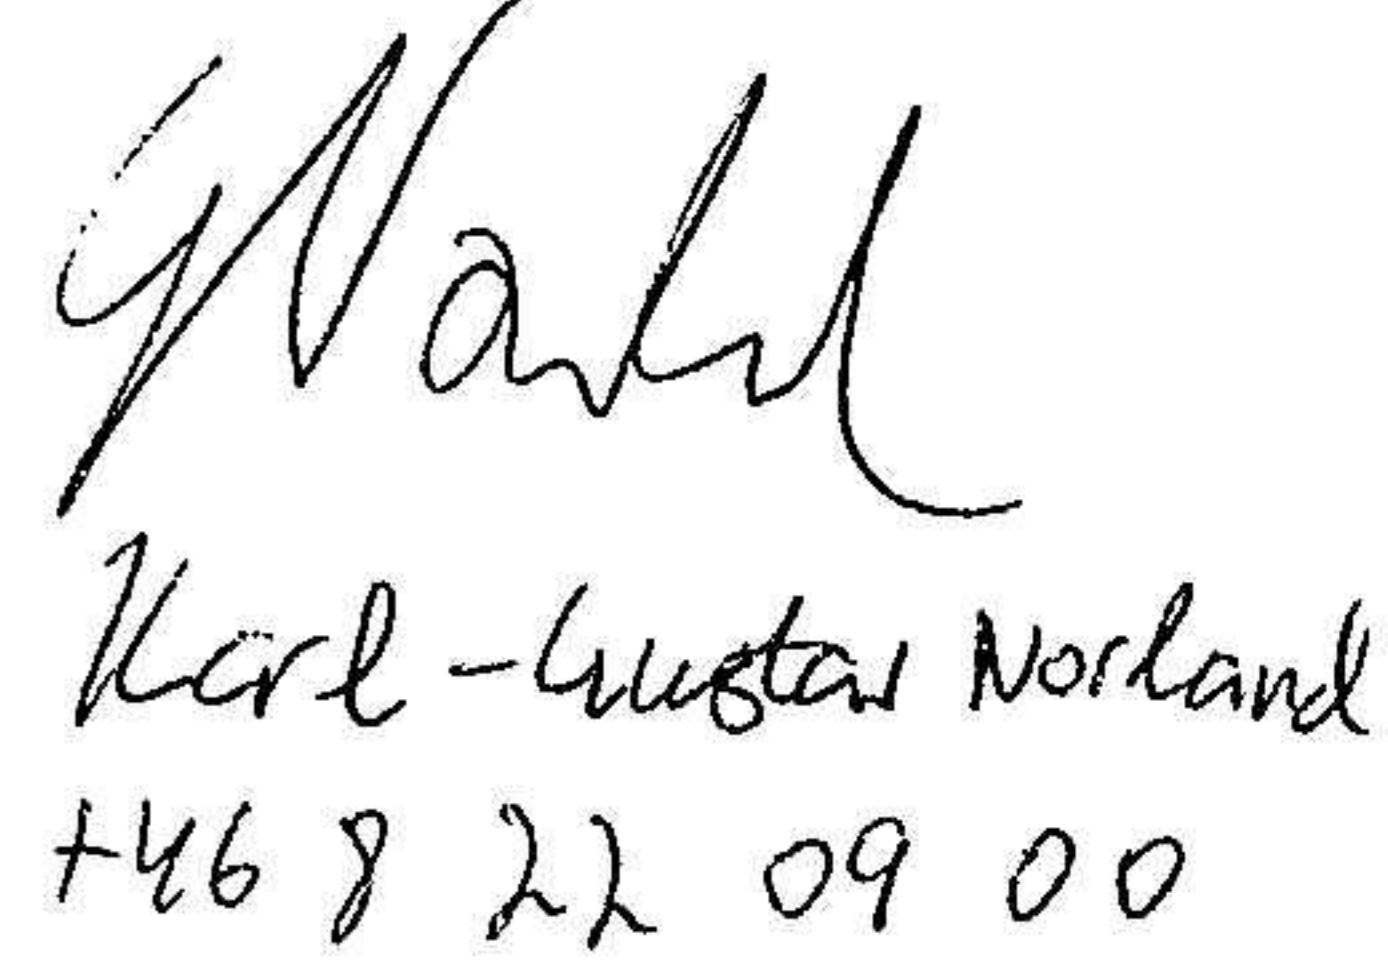 Karl-Gustav Norland
+46 8 22 09 00